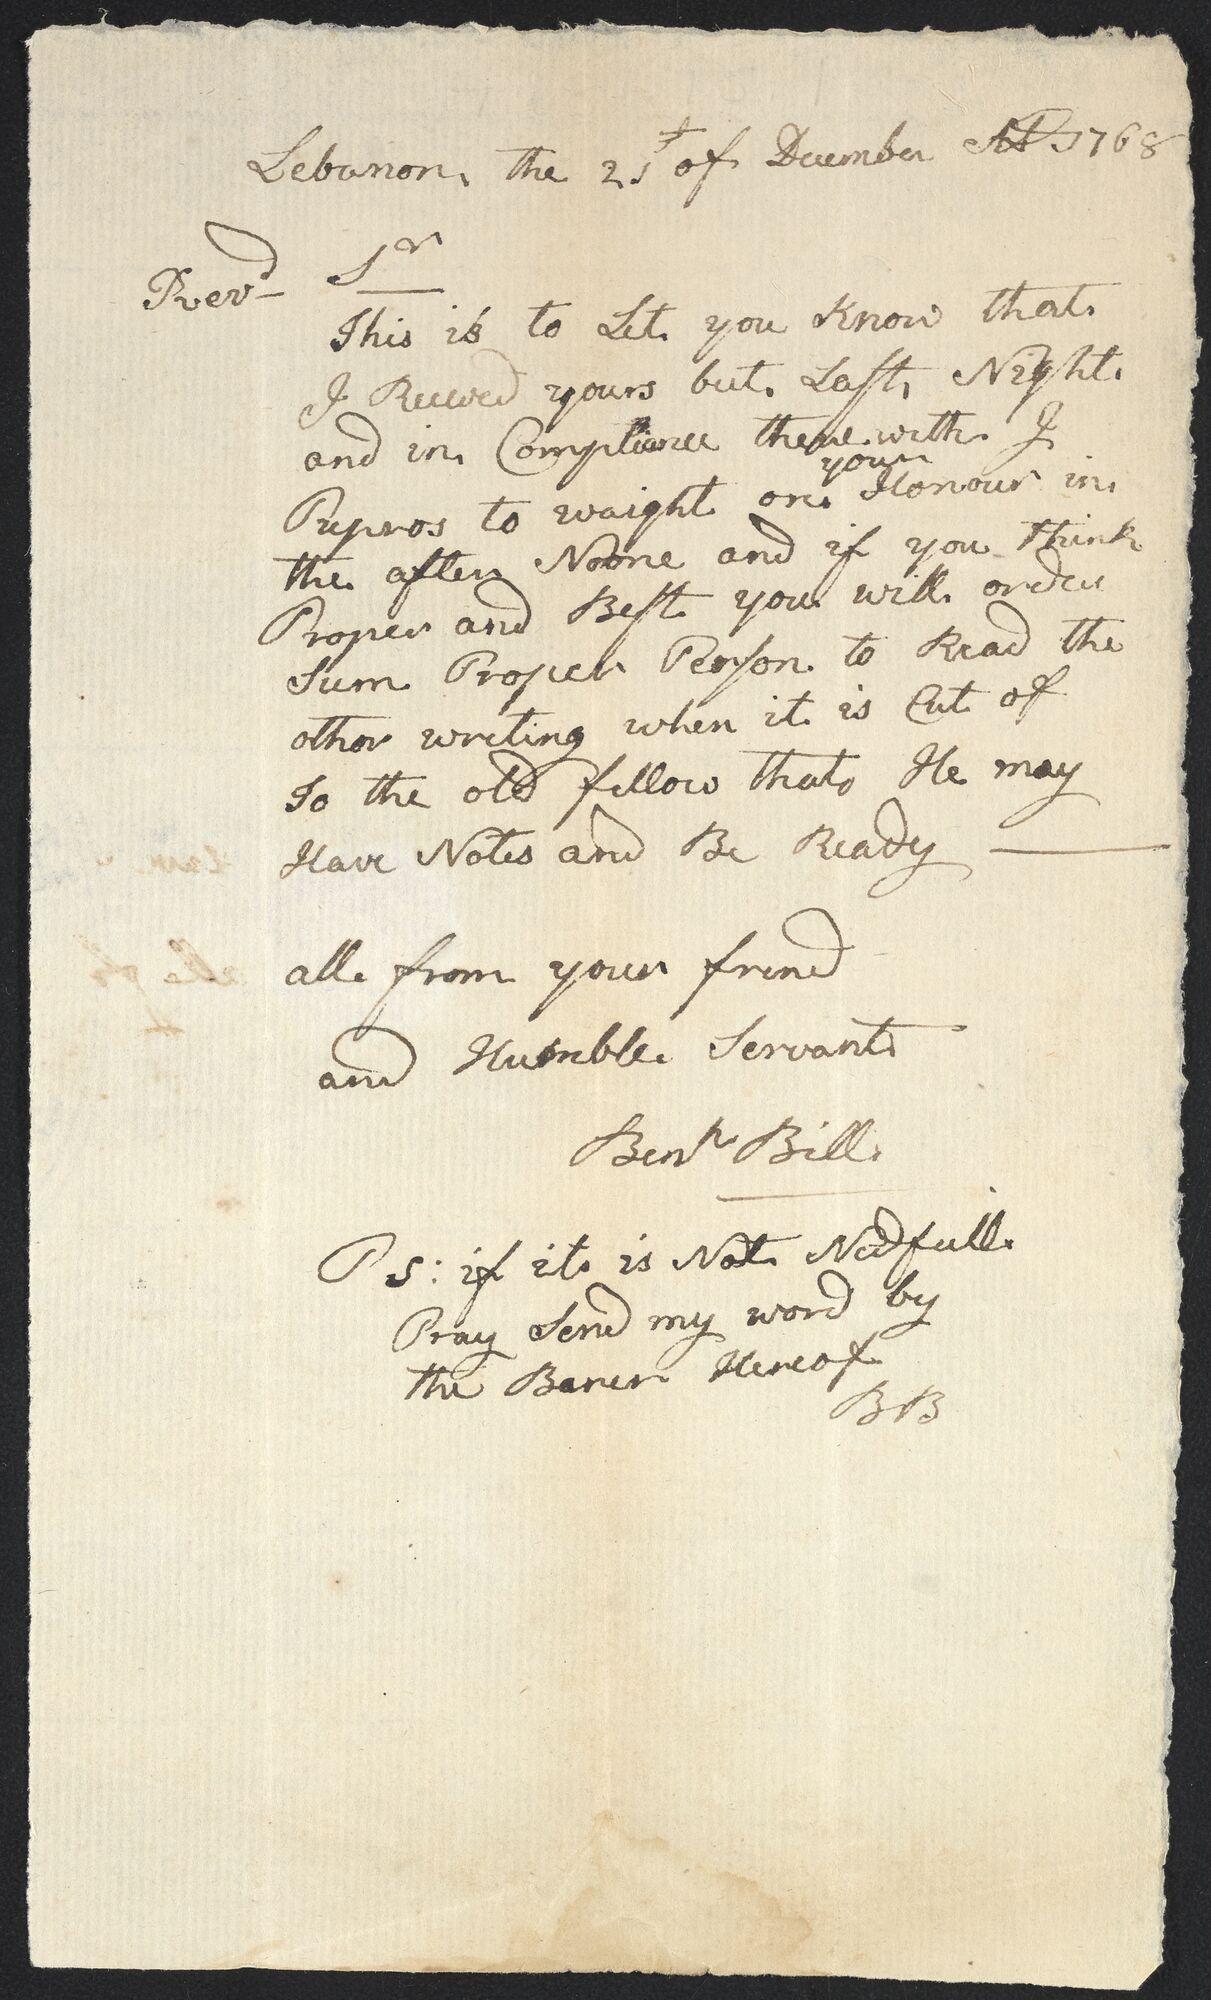 Lebanon, the 21st of December AD 1768
Revd Sr
This is to Let you Know that
I Receved yours but Last Night
and in Compliance there with I
Prepros to waight on your Honour in
the after Noone and if you think
Proper and Best you will order
Sum Proper Person to Read the
other writing when it is Cut of
So the old fellow that He may
Have Notes and Be Ready
all from your frend
and Humble Servant
Benjn Bill
Ps: if it is Not Nedfull
Pray Send my word by
the Barer Hereof
BB